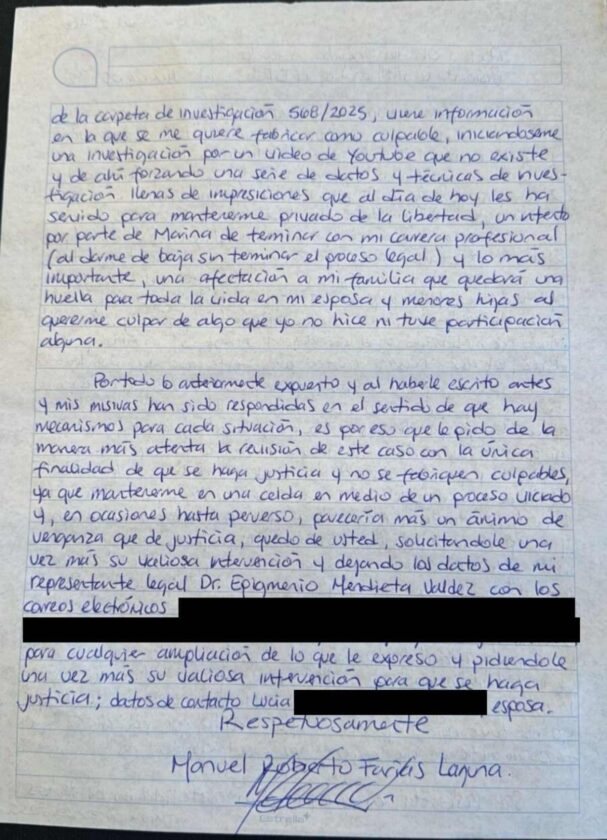 de la carpeta de investigación 568/2025, viene información
en la que se me quiere fabricar como culpable, iniciandoseme
una investigación por un video de Youtube que no existe
y de ahí forzando una serie de datos y técnicas de inves-
tigación llenas de impresiciones que al día de hoy les ha
servido para mantenerme privado de la libertad, un intento
por parte de Marina de terminar con mi carrera profesional
(al darme de baja sin terminar el proceso legal) y lo más
importante, una afectación a mi familia que quedará una
huella para toda la vida en mi esposa y menores hijas al
quererme culpar de algo que yo no hice ni tuve participación
alguna.
Por todo lo anteriormente expuesto y al haberle escrito antes
y mis misivas han sido respondidas en el sentido de que hay
mecanismos para cada situación, es por eso que le pido de la
manera más atenta la revisión de este caso con la única
finalidad de que se haga justicia y no se fabriquen culpables,
ya que mantenerme en una celda en medio de un proceso viciado
y, en ocasiones hasta perverso, parecería más un ánimo de
venganza que de justicia, quedo de usted, solicitandole una
vez más su valiosa intervención y dejando los datos de mi
representante legal Dr. Epigmenio Mendieta Valdez con los
correos electrónicos
para cualquier ampliación de lo que le expreso y pidiendole
una vez más su valiosa intervención para que se haga
justicia; datos de contacto Lucía esposa.
Respetuosamente
Manuel Roberto Farías Laguna.
Estrella